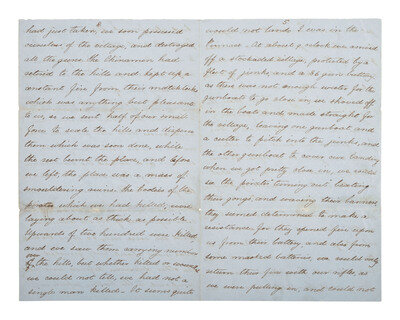 had just taken, we soon possessed
ourselves of the village, and destroyed
all the guns the Chinamen had
retired to the hills and kept up a
constant fire from their matchlocks
which was anything but pleasant
to us, so we sent half of our small
force to scale the hills and disperse
them which was soon done, while
the rest burnt the place, and before
we left the place was a mass of
smouldering ruins. the bodies of the
pirates which we had killed, were
laying about as thick as possible
upwards of two hundred were killed
and we saw them carrying numbers
over the hills, but whether killed or wounded
we could not tell, we had not a
single man killed - 10 were quite
5
would not land. I was in the
Pinnace - At about 9 o'clock we arrived
off a stockaded village, protected by a
fleet of junks, and a 36 gun battery
as there was not enough water for the
gunboat to go close in we shoved off
in the boats and made straight for
the village, leaving one gunboat and
a cutter to pitch into the junks, and
the other gunboat to cover our landing
when we got pretty close in, we could
see the pirates turning out beating
their gongs, and waving their banners
they seemed determined to make a
resistance for they opened fire upon
us from their battery and also from
some masked batteries, we could only
return their fire with our rifles, as
we were pulling in, and could not